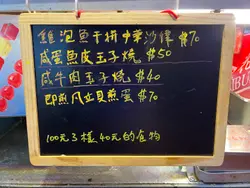 雞泡魚干拼中華沙律 $70
咸蛋魚皮玉子燒 $50
咸牛肉玉子燒 $40
即煎凡立貝煎蛋 $70
100元3樣40元的食物